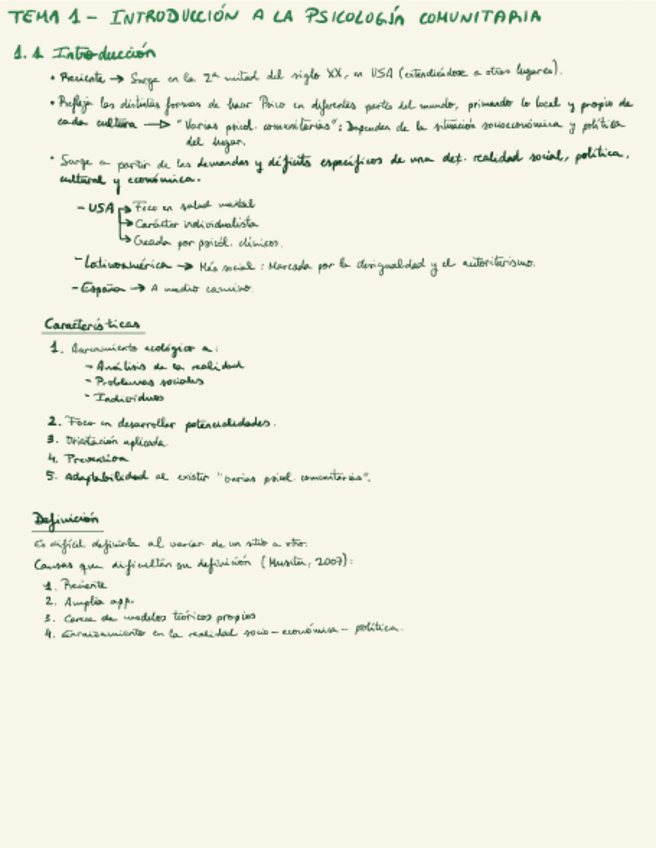 TEMA 1 – INTRODUCCIÓN A LA PSICOLOGÍA COMUNITARIA
1.1 Introducción
• Reciente → Surge en la 2ª mitad del siglo XX, en USA (extendiéndose a otros lugares).
• Refleja las distintas formas de hacer Psico en diferentes partes del mundo, primando lo local y propio de
cada cultura → "Varias psicol. comunitarias": Dependen de la situación socioeconómica y política
del lugar.
• Surge a partir de las demandas y déficits específicos de una det. realidad social, política,
cultural y económica.
- USA → Foco en salud mental
→ Carácter individualista
→ Creada por psicól. clínicos.
- Latinoamérica → Más social: Marcada por la desigualdad y el autoritarismo.
- España → A medio camino.
Características
1. Acercamiento ecológico a:
- Análisis de la realidad
- Problemas sociales
- Individuos
2. Foco en desarrollar potencialidades.
3. Orientación aplicada
4. Prevención
5. Adaptabilidad al existir "varias psicol. comunitarias".
Definición
Es difícil definirla al variar de un sitio a otro.
Causas que dificultan su definición (Musitu, 2007):
1. Reciente
2. Amplia app.
3. Carece de modelos teóricos propios
4. Enraizamiento en la realidad socio-económica-política.